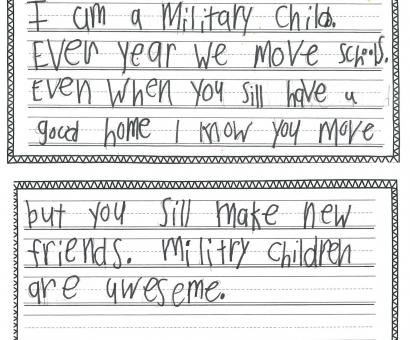 I am a Military Child.
Ever year we move schools.
Even When you sill have a
good home I know you move
but you sill make new
friends. Militry children
are aweseme.